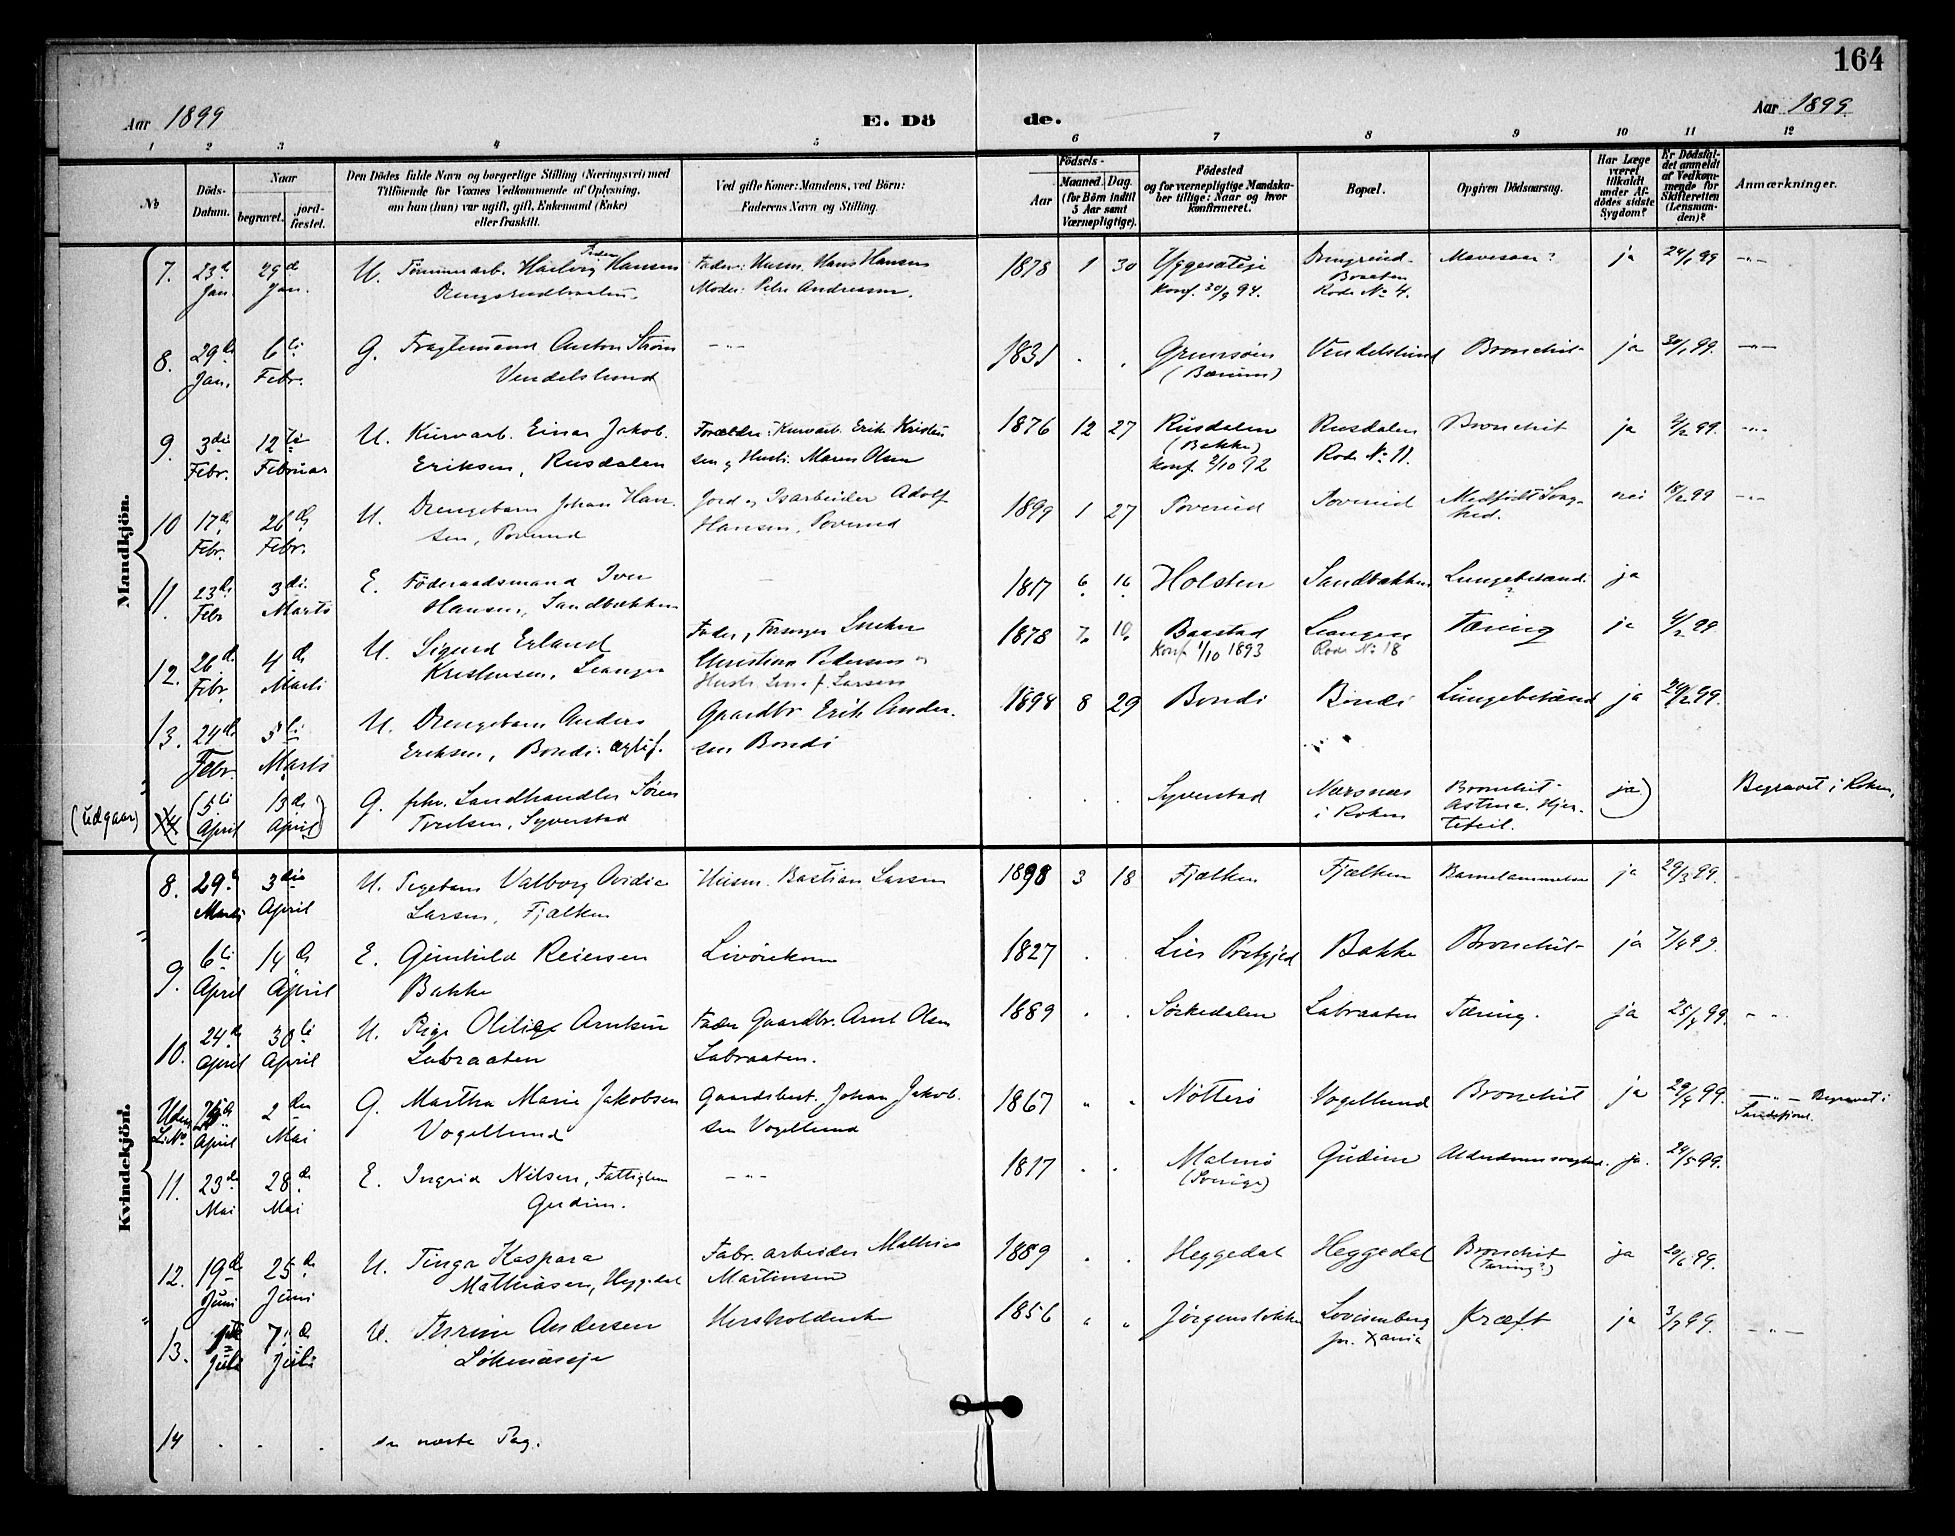 164
Aar 1899
E. Dö
de.
Aar 1899.
1 2 3 4 5 6 7 8 9 10 11 12
No
Döds-
Datum.
Naar
begravet.
jord-
fæstet.
Den Dödes fulde Navn og borgerlige Stilling (Næringsvei) med
Tilföiende for Voxnes Vedkommende af Oplysning,
om han (hun) var ugift, gift, Enkemand (Enke)
eller fraskilt.
Ved gifte Koner: Mandens, ved Börn:
Faderens Navn og Stilling.
Födsels-
Aar
Maaned. Dag.
(for Börn indtil
5 Aar samt
Værnepligtige).
Födested
og for værnepligtige Mandska-
ber tillige: Naar og hvor
konfirmeret.
Bopæl.
Opgiven Dödsaarsag.
Har Læge
været
tilkaldt
under Af-
dödes sidste
Sygdom?
Er Dödsfal-
det anmeldt
af Vedkom-
mende for
Skifteretten
(Lensman-
den)?
Anmærkninger.
Mandkjön.
7. 23d Jan. 29d Jan.
U. Tømmerarb. Hansen
Fader: Husm. Hans Hansen
Moder: Andreasen.
1878 1 30
Konf. 30/9 94.
Braaten
Rode No 4.
Mavesaar?
ja 24/1 99 -"-
8. 29de Jan. 6te Febr.
G. Fragtemand Anton Strøm
Vendelslund
-"-
1831 . .
(Bærum)
Vendelslund
Bronchit
ja 30/1 99. -"-
9. 3die Febr. 12te Februar
U. Kurvarb. Einar Jakob
Eriksen, Rusdalen
Forældre: Kurvarb. Erik Kristen
sen og Hustr. Maren Olsen
1876 12 27
Rusdalen
(Bakke)
Konf. 2/10 92
Rusdalen
Rode No 11.
Bronchit
ja 4/2 99. -"-
10 17de Febr. 26de Febr.
U. Drengebarn Johan Han-
sen, Poverud
Jord og Isarbeider Adolf
Hansen, Poverud
1899 1 27
Poverud
Poverud
Medfødt Svag-
hed.
nei 18/2 99 -"-
11. 23de Febr 3die Marts
E. Föderaadsmand Iver
Hansen, Sandbækken
1817 6 16
Holsten
Sandbækken
Lungebetænd.
ja
12. 26de Febr. 4de Marts
U. Sigurd Erland
Kristensen, Leangen
Snekker
Christian Pedersen og
Hustr. f. Larsen
1878 7 10
Baastad
Konf. 1/10 1893
Leangen
Rode No 18
Tæring
ja
13. 24de Febr. 5te Marts
U. Drengebarn Anders
Eriksen, Bondi. ægtef.
Gaardbr. Erik Ander-
sen Bondi
1898 8 29
Bondi
Bondi
Lungebetænd
ja 99.
(Udgaar) 14 (5te April 13de April)
G. fhv. Landhandler Søren
Syverstad
. . .
Syverstad
Nærsnæs
i Røken
Bronchit-
Astma. Hjer-
tefeil.
ja)
Begravet i Røken,
Kvindekjön.
8. 29de Marts 3die April
U. Pigebarn Valborg Ovidia
Larsen, Fjælken
Husm. Bastian Larsen
1898 3 18
Fjælken
Fjælken
Barnelammelse
ja 29/3 99.
9. 6te April 14de April
E. Gunhild Reiersen
Bakke
1827 . .
Lier Præstgjeld
Bakke
Bronchit
ja 7/4 99.
10. 24de April 30te April
U. Pige Arntsen
Labraaten
Fader Gaardbr. Arnt Olsen
Labraaten.
1889 . .
Sørkedalen
Labraaten
Tæring.
ja 25/4 99. -"-
Uden L.No. April 2den Mai
G. Martha Marie Jakobsen
Vogellund
Gaardsbest. Johan Jakob-
sen Vogellund
1867 " "
Nøtterø
Vogellund
Bronchit
ja 29/4 99.
-"- Begravet i
Sandefjord.
11. 23de Mai 28de Mai
E. Ingrid Nilsen, Fattiglem
Gudim.
-"-
1817 . .
Malmø
(Sverige)
Gudim
Alderdomssvaghed.
ja. 24/5 99.
12. 19de Juni 25de Juni
U. Tinga Kaspara
Mathiasen, Heggedal
Fabr. arbeider Mathias
Martinsen
1889 . .
Heggedal
Heggedal
Bronchit
(Tæring?)
ja 20/6 99.
13. 1ste Juli 7de Juli
U. Thrine Andersen
Løkenæseje
Husholderske
1856 " "
Jørgensløkken
Lovisenberg
pr. Xania
Kræft
ja 3/7 99. -"-
14 . . . se næste Pag.